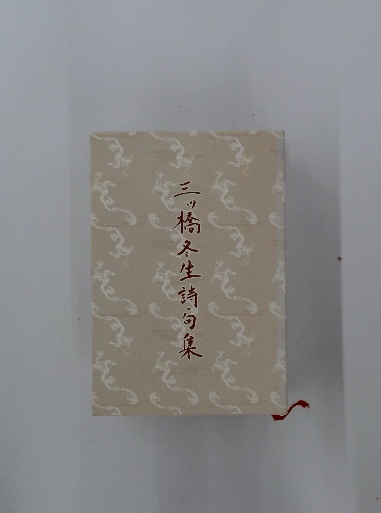 三ッ橋冬生詩・句集